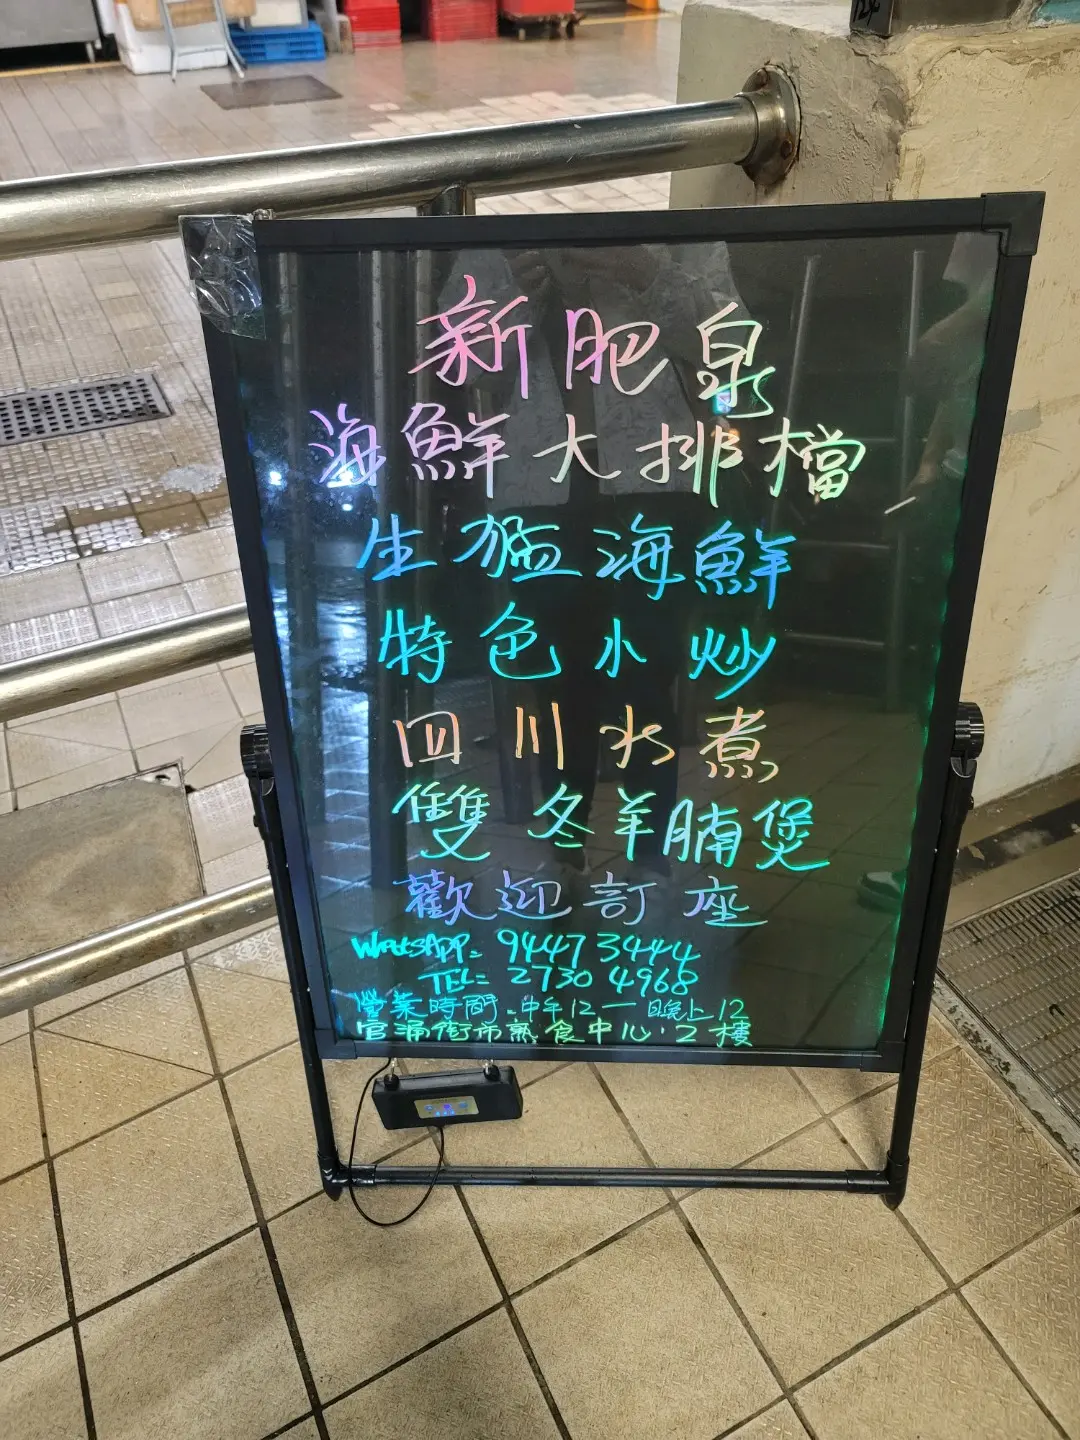 新肥泉
海鮮大排檔
生猛海鮮
特色小炒
四川水煮
雙冬羊腩煲
歡迎訂座
WHATSAPP: 9447 3444
TEL: 2730 4968
營業時間:中午12一晚上12
官涌街市熟食中心·2樓